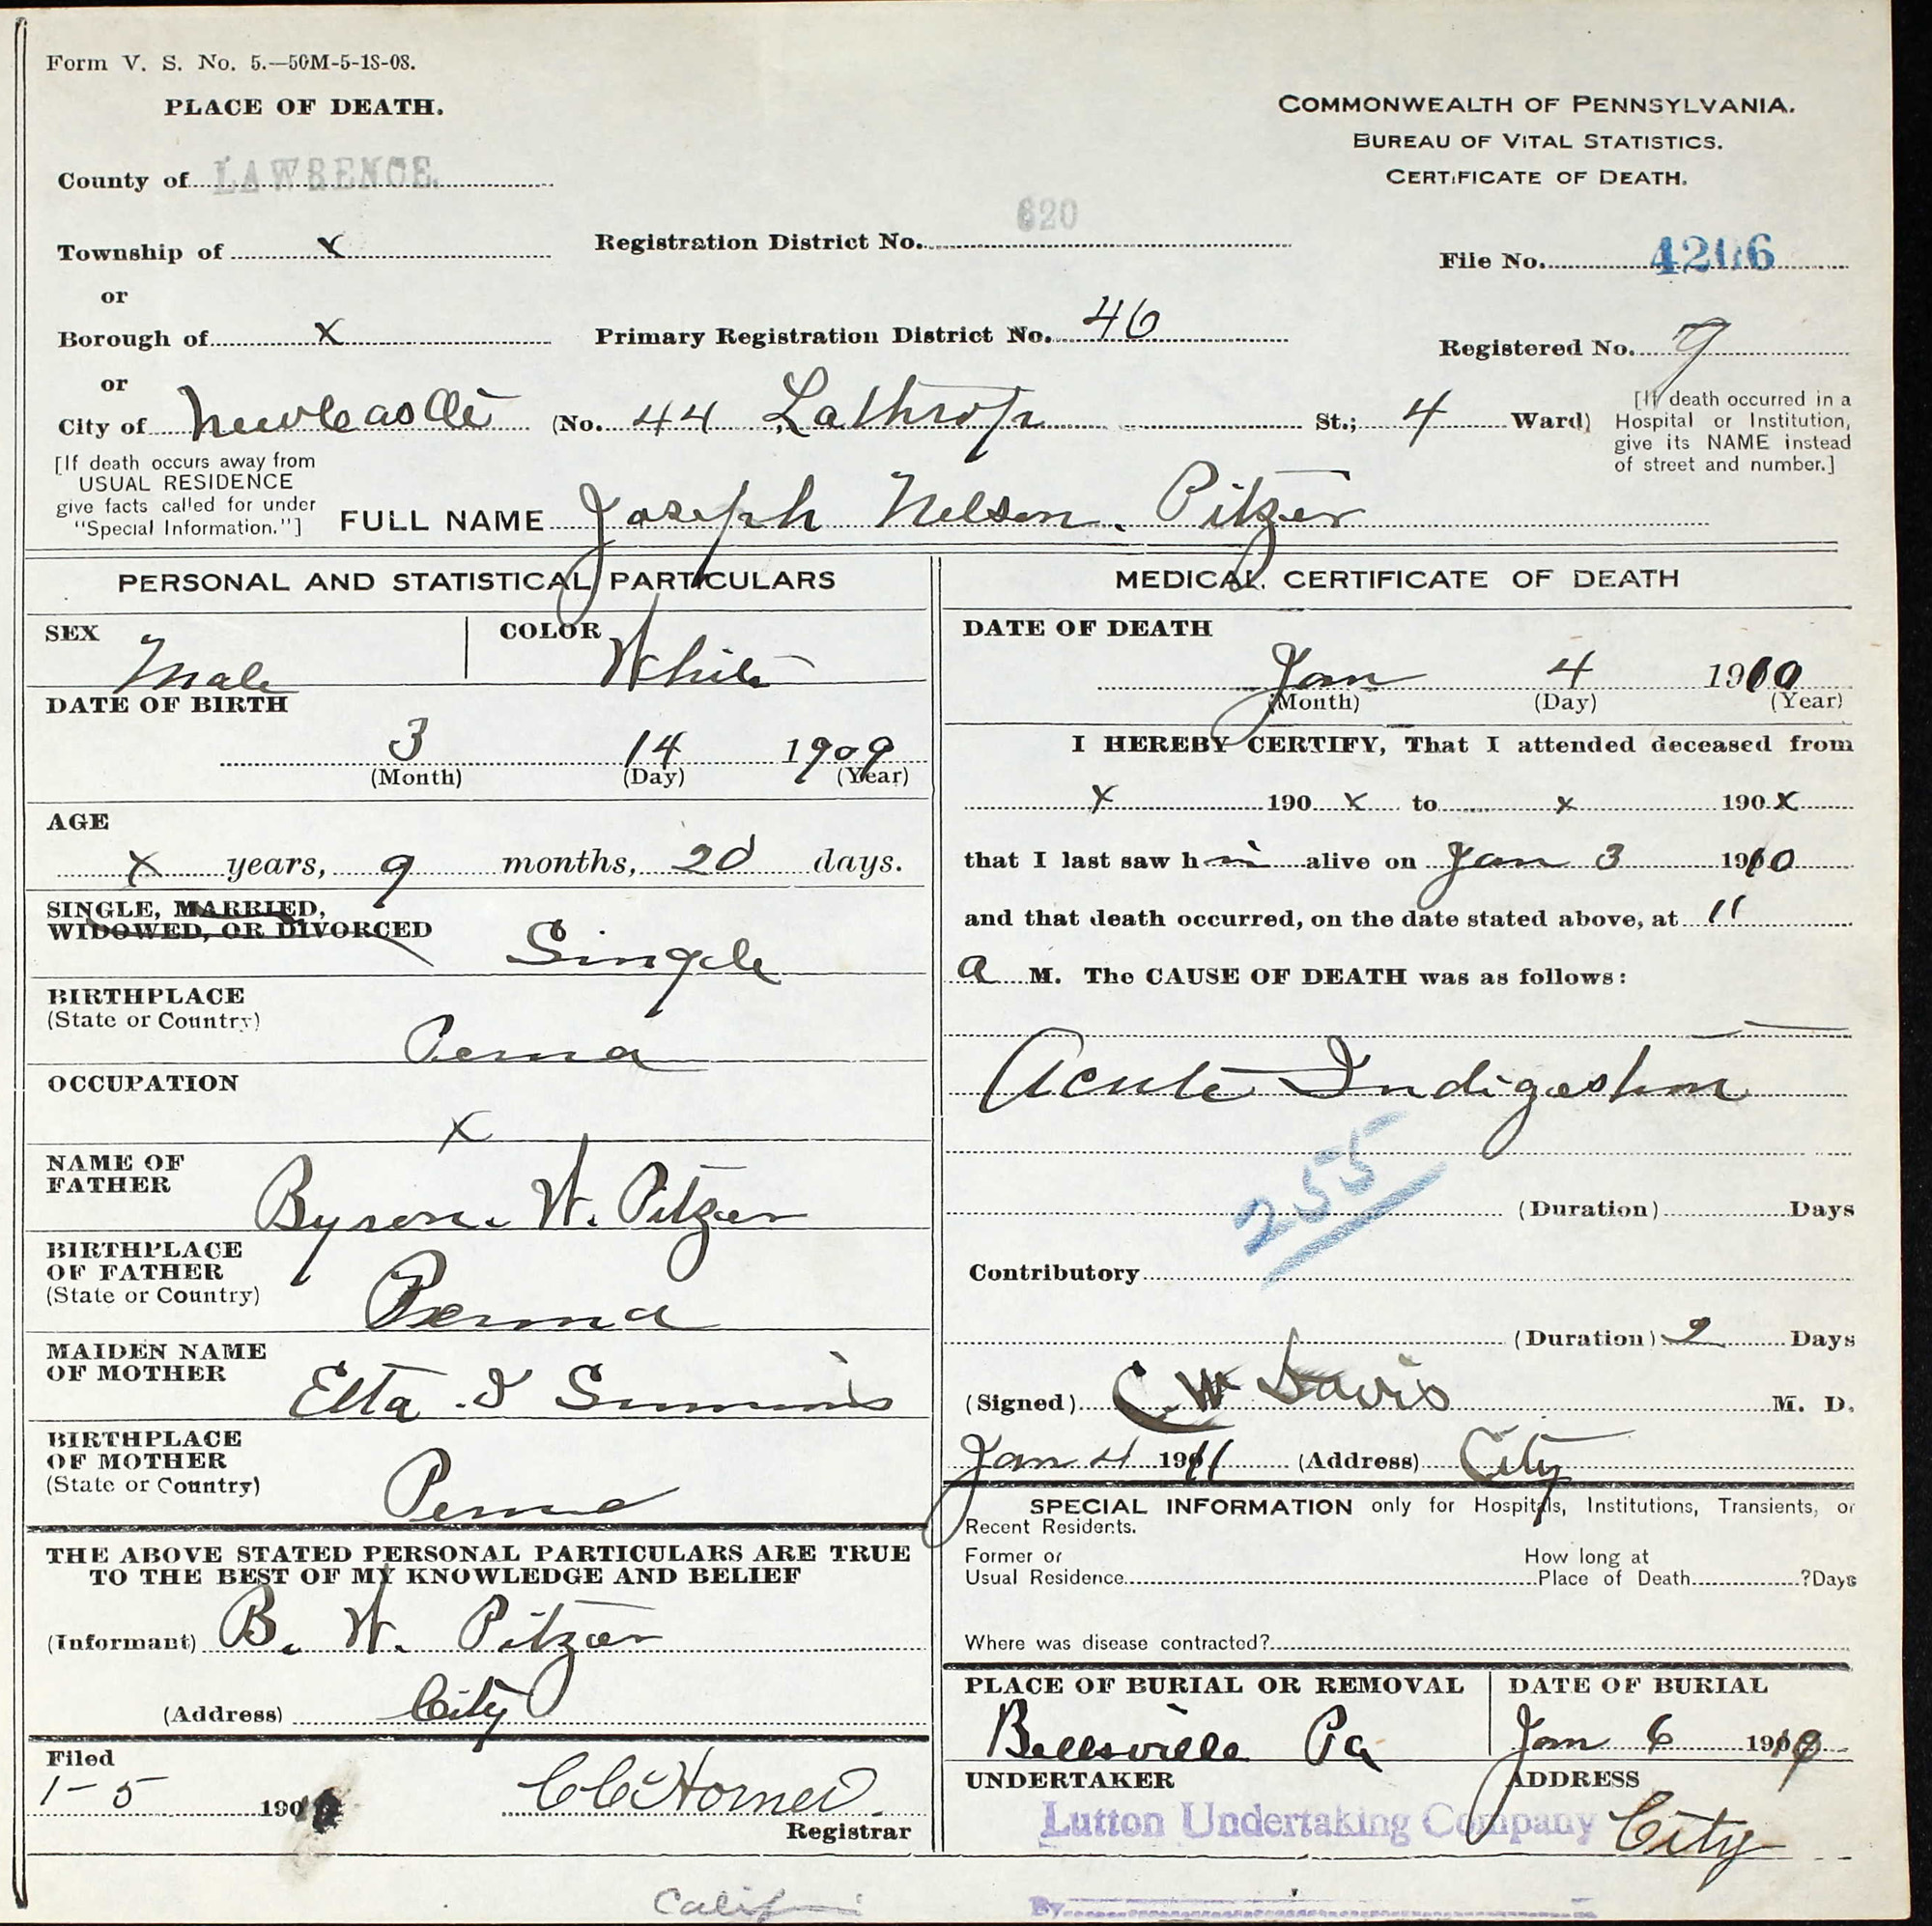 Form V. S. No. 5.—50M-5-18-08.
PLACE OF DEATH.
COMMONWEALTH OF PENNSYLVANIA.
BUREAU OF VITAL STATISTICS.
CERTIFICATE OF DEATH.
County of LAWRENCE.
Township of x
Registration District No. 620
File No. 4206
or
Borough of x
Primary Registration District No. 46
Registered No. 9
or
City of Newcastle (No. 44 Lathrop St.; 4 Ward)
[If death occurred in a
Hospital or Institution,
give its NAME instead
of street and number.]
[If death occurs away from
USUAL RESIDENCE
give facts called for under
"Special Information."]
FULL NAME Joseph Nelson Pitzer
PERSONAL AND STATISTICAL PARTICULARS
SEX Male
COLOR White
DATE OF BIRTH
3 14 1909
(Month) (Day) (Year)
AGE
x years, 9 months, 20 days.
SINGLE, MARRIED,
WIDOWED, OR DIVORCED
Single
BIRTHPLACE
(State or Country)
Penna
OCCUPATION
x
NAME OF
FATHER
Byron W. Pitzer
BIRTHPLACE
OF FATHER
(State or Country)
Penna
MAIDEN NAME
OF MOTHER
Etta
BIRTHPLACE
OF MOTHER
(State or Country)
Penna
THE ABOVE STATED PERSONAL PARTICULARS ARE TRUE
TO THE BEST OF MY KNOWLEDGE AND BELIEF
(Informant) B. W. Pitzer
(Address) City
Filed
1-5 190
C C Horner
Registrar
MEDICAL CERTIFICATE OF DEATH
DATE OF DEATH
Jan 4 1910
(Month) (Day) (Year)
I HEREBY CERTIFY, That I attended deceased from
x 190 x to x 190 x
that I last saw h im alive on Jan 3 1910
and that death occurred, on the date stated above, at 11
a M. The CAUSE OF DEATH was as follows:
Acute Indigestion
255
(Duration) Days
Contributory
(Duration) 2 Days
(Signed) C. W Davis M. D.
Jan 4 1911 (Address) City
SPECIAL INFORMATION only for Hospitals, Institutions, Transients, or
Recent Residents.
Former or
Usual Residence
How long at
Place of Death ?Days
Where was disease contracted?
PLACE OF BURIAL OR REMOVAL
Bellsville Pa
DATE OF BURIAL
Jan 6 1910
UNDERTAKER
Lutton Undertaking Company
ADDRESS
City
By